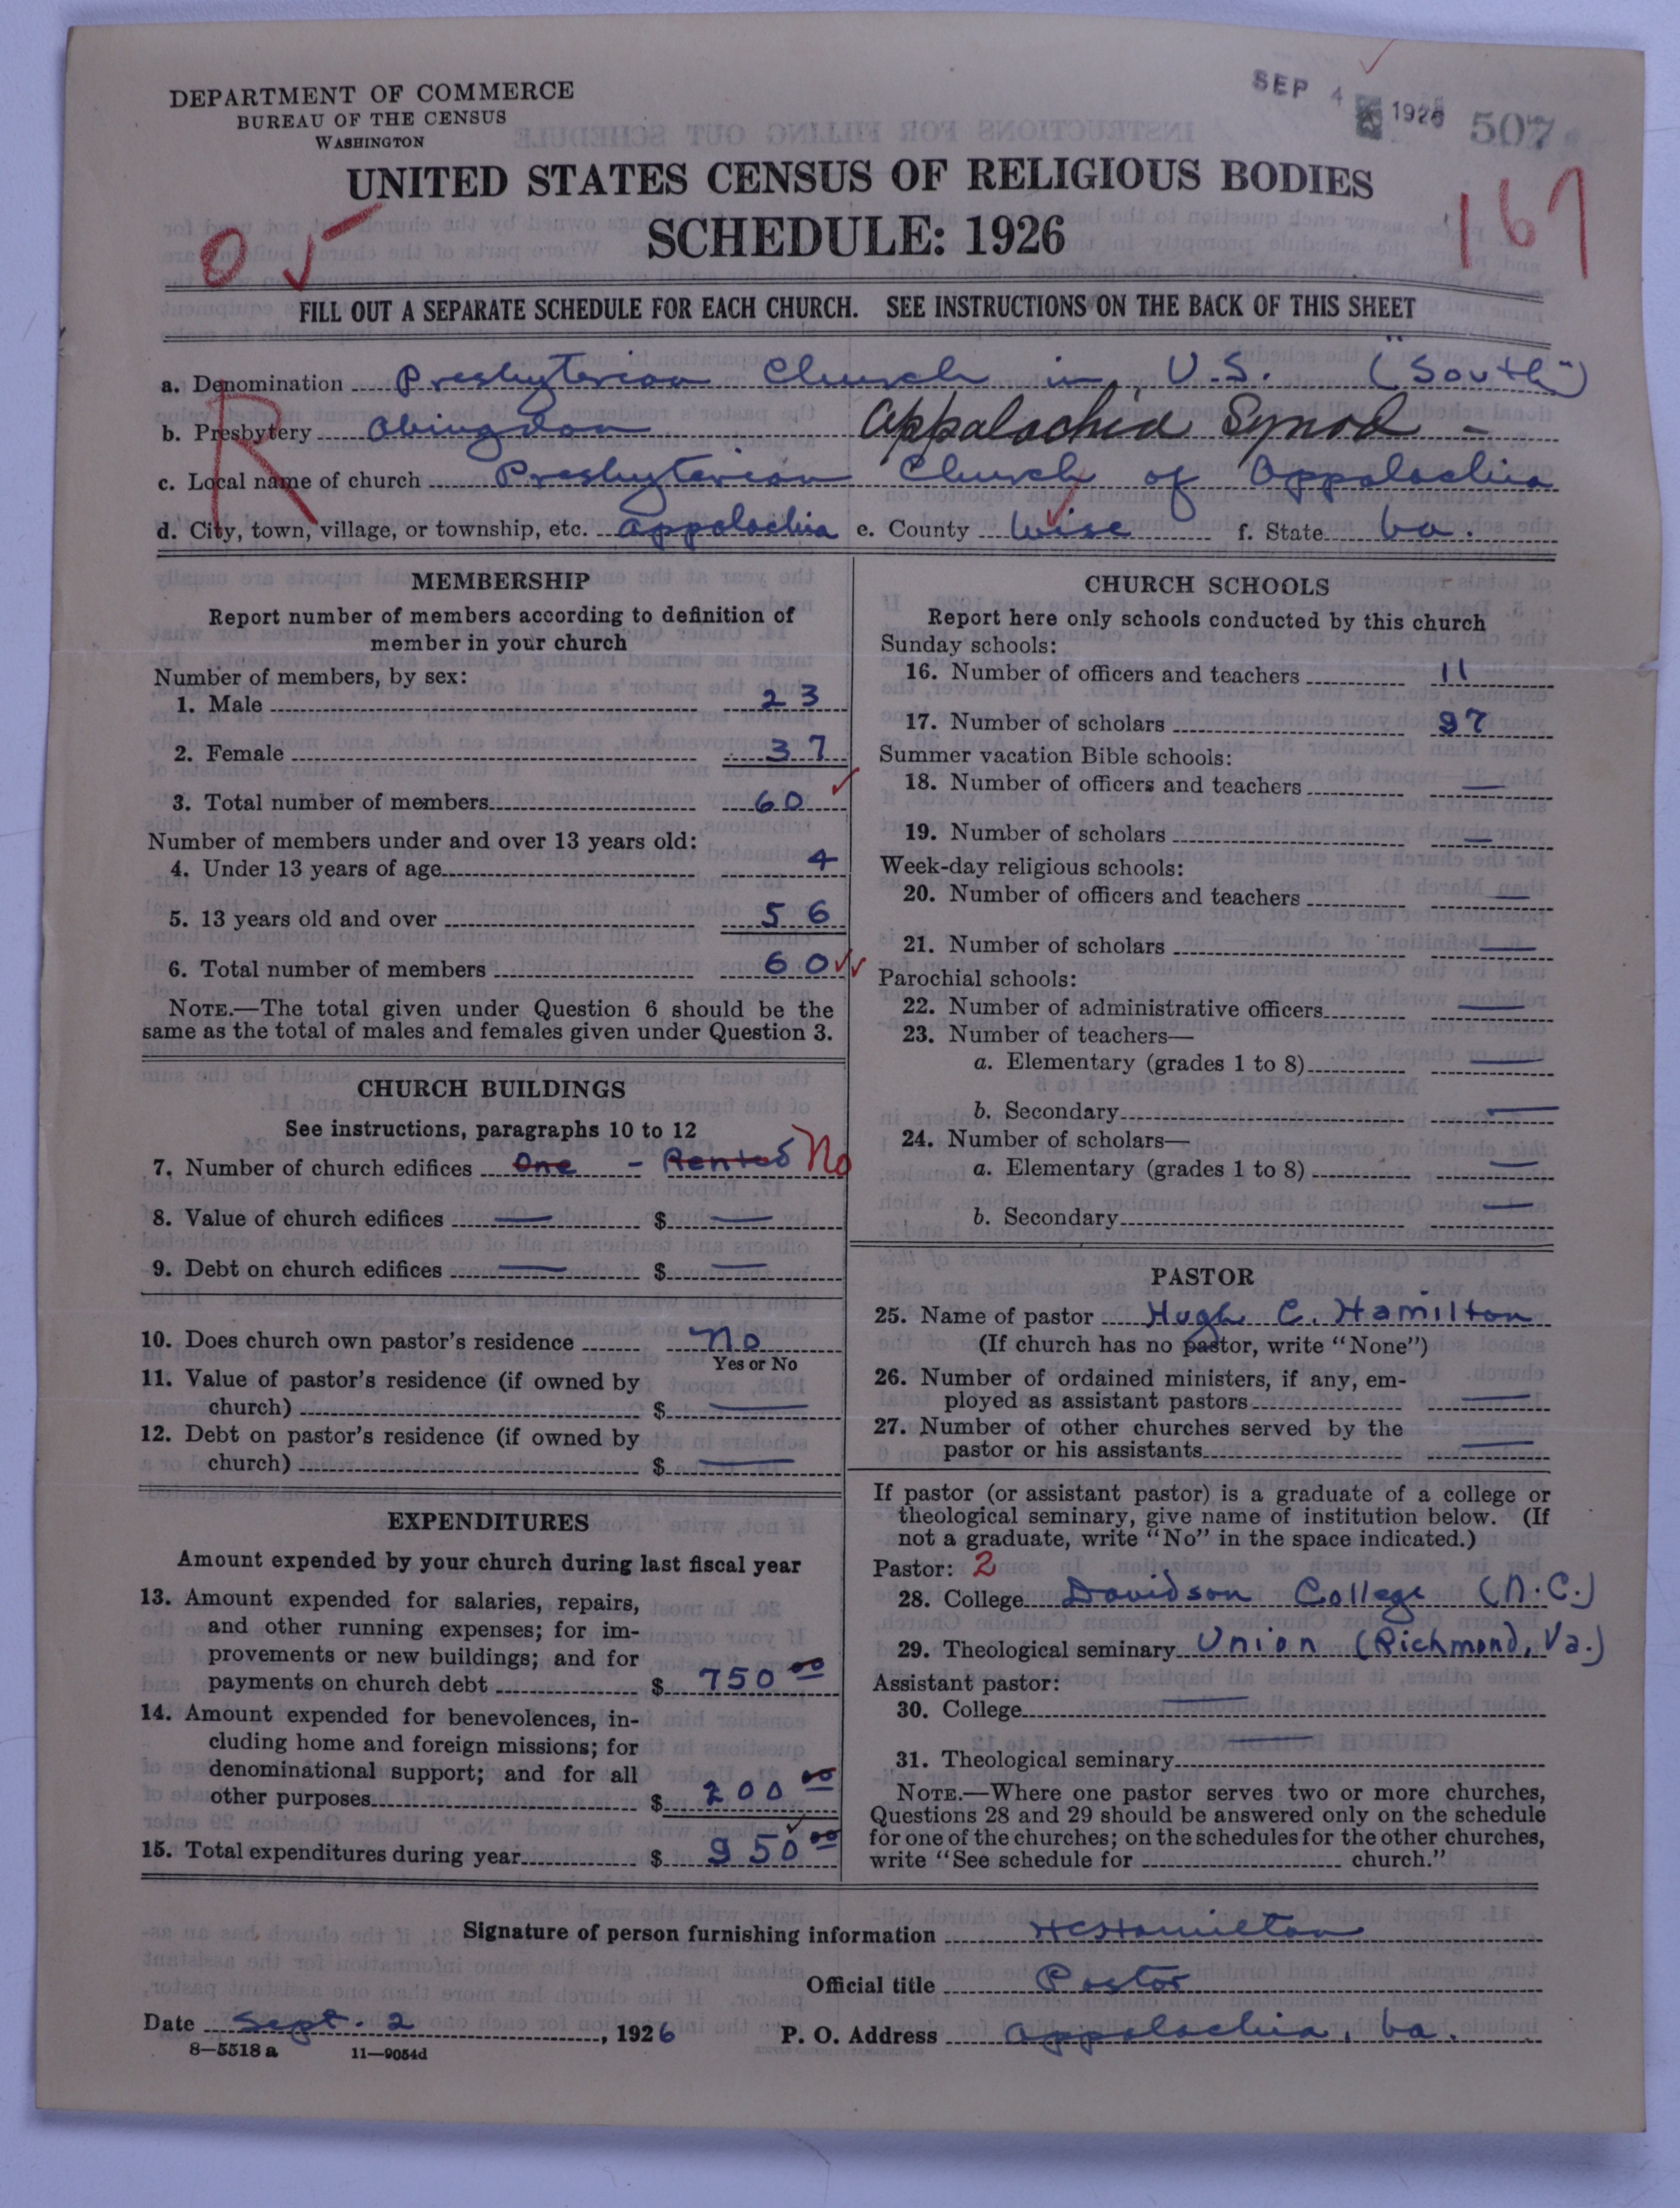 DEPARTMENT OF COMMERCE
BUREAU OF THE CENSUS
WASHINGTON
SEP 4 1926 507
UNITED STATES CENSUS OF RELIGIOUS BODIES
SCHEDULE: 1926
167
FILL OUT A SEPARATE SCHEDULE FOR EACH CHURCH. SEE INSTRUCTIONS ON THE BACK OF THIS SHEET
a. Denomination Presbyterian Church in U.S. ("South")
b. Presbytery Abingdon Appalachia Synod -
R
c. Local name of church Presbyterian Church of Appalachia
d. City, town, village, or township, etc. Appalachia e. County Wise f. State Va.
MEMBERSHIP
Report number of members according to definition of
member in your church
Number of members, by sex:
1. Male 23
2. Female 37
3. Total number of members 60
Number of members under and over 13 years old:
4. Under 13 years of age 4
5. 13 years old and over 56
6. Total number of members 60
NOTE.—The total given under Question 6 should be the
same as the total of males and females given under Question 3.
CHURCH BUILDINGS
See instructions, paragraphs 10 to 12
7. Number of church edifices One - Rented No
8. Value of church edifices — $ —
9. Debt on church edifices — $ —
10. Does church own pastor's residence No
Yes or No
11. Value of pastor's residence (if owned by
church) $ —
12. Debt on pastor's residence (if owned by
church) $ —
EXPENDITURES
Amount expended by your church during last fiscal year
13. Amount expended for salaries, repairs,
and other running expenses; for im-
provements or new buildings; and for
payments on church debt $ 750 00
14. Amount expended for benevolences, in-
cluding home and foreign missions; for
denominational support; and for all
other purposes $ 200 00
15. Total expenditures during year $ 950 00
CHURCH SCHOOLS
Report here only schools conducted by this church
Sunday schools:
16. Number of officers and teachers 11
17. Number of scholars 97
Summer vacation Bible schools:
18. Number of officers and teachers —
19. Number of scholars —
Week-day religious schools:
20. Number of officers and teachers —
21. Number of scholars —
Parochial schools:
22. Number of administrative officers —
23. Number of teachers—
a. Elementary (grades 1 to 8) —
b. Secondary —
24. Number of scholars—
a. Elementary (grades 1 to 8) —
b. Secondary —
PASTOR
25. Name of pastor Hugh C. Hamilton
(If church has no pastor, write "None")
26. Number of ordained ministers, if any, em-
ployed as assistant pastors —
27. Number of other churches served by the
pastor or his assistants —
If pastor (or assistant pastor) is a graduate of a college or
theological seminary, give name of institution below. (If
not a graduate, write "No" in the space indicated.)
Pastor: 2
28. College Davidson College (N.C.)
29. Theological seminary Union (Richmond, Va.)
Assistant pastor:
30. College —
31. Theological seminary —
NOTE.—Where one pastor serves two or more churches,
Questions 28 and 29 should be answered only on the schedule
for one of the churches; on the schedules for the other churches,
write "See schedule for church."
Signature of person furnishing information HCHamilton
Official title Pastor
Date Sept. 2, 1926 P. O. Address Appalachia, Va.
8—5518 a 11—9054d